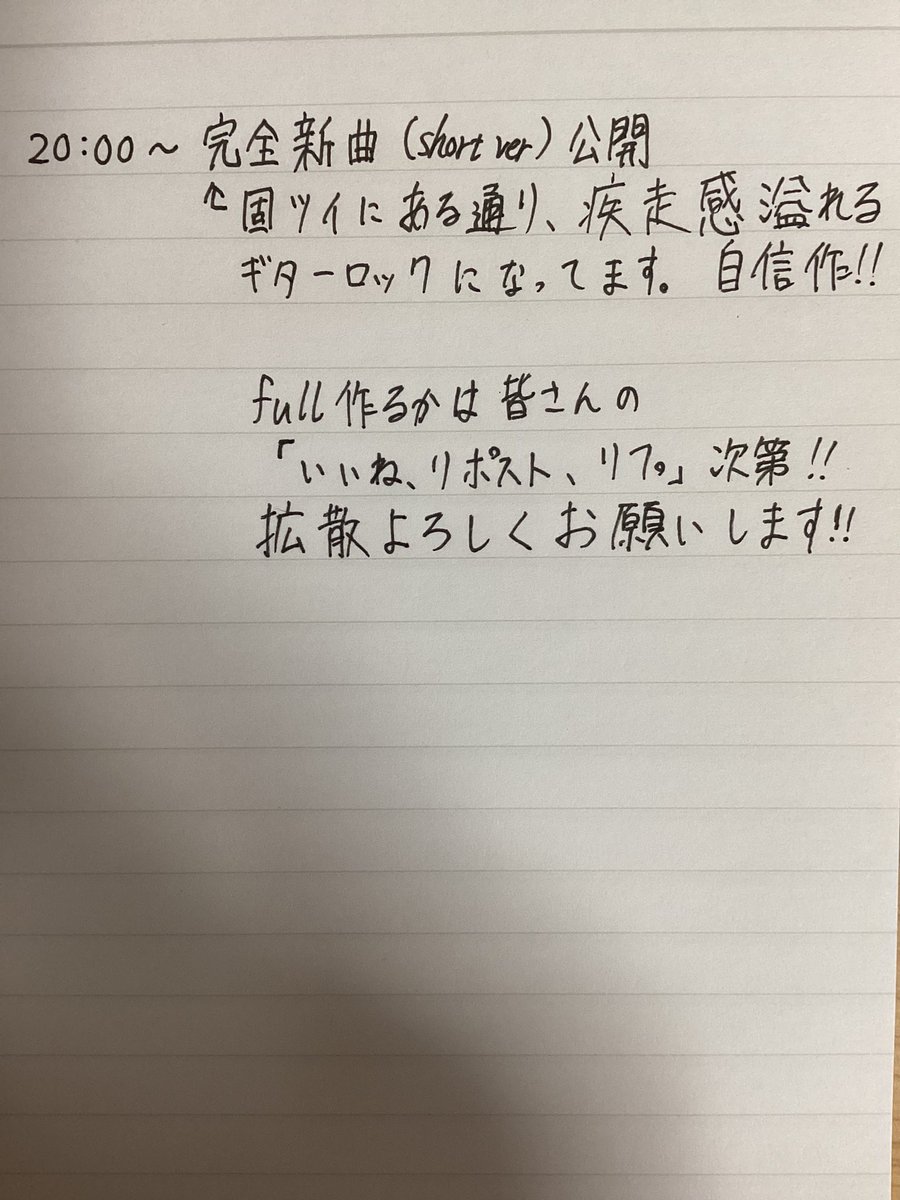 20:00～ 完全新曲(short ver)公開
↑固ツイにある通り、疾走感溢れる
ギターロックになってます。自信作!!
full作るかは皆さんの
「いいね、リポスト、リプ」次第!!
拡散よろしくお願いします!!